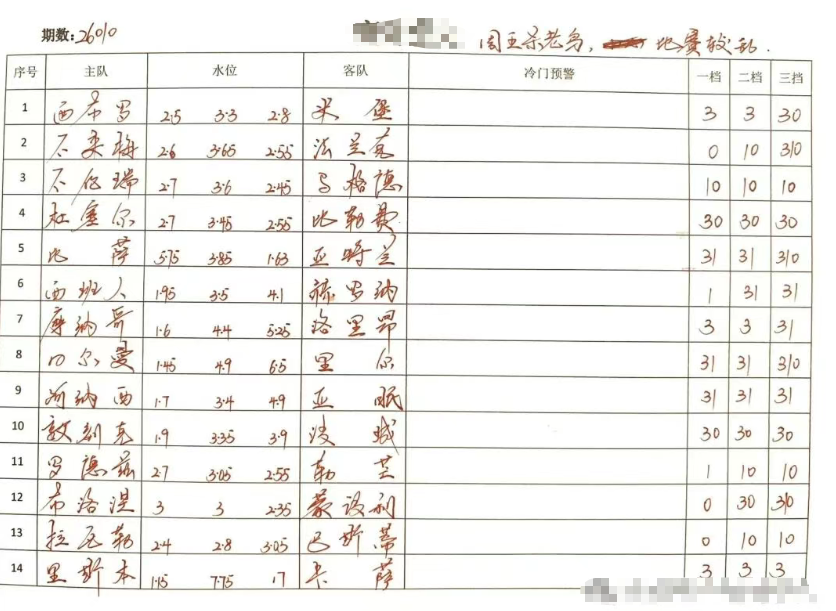 期数: 26010
国王杯老鸟, 地赛搅乱.
序号 主队 水位 客队 冷门预警 一档 二档 三档
1 西希罗 2.5 3.3 2.8 米堡 3 3 30
2 不莱梅 2.6 3.65 2.55 法兰克 0 10 310
3 不伦瑞 2.7 3.6 2.45 马格德 10 10 10
4 杜塞尔 2.7 3.45 2.55 比勒费 30 30 30
5 比萨 5.75 3.85 1.63 亚特兰 31 31 310
6 西班人 1.95 3.5 4.1 赫罗纳 1 31 31
7 摩纳哥 1.6 4.4 5.25 洛里昂 3 3 31
8 口尔曼 1.45 4.9 6.5 里尔 31 31 310
9 甸纳西 1.7 3.4 4.9 亚眠 31 31 31
10 敦刻克 1.9 3.35 3.9 波城 30 30 30
11 罗德兹 2.7 3.05 2.55 勒芒 1 10 10
12 布洛涅 3 3 2.35 蒙彼利 0 30 310
13 拉瓦勒 2.4 2.8 3.05 巴斯蒂 0 10 10
14 里斯本 1.15 7.75 17 卡萨 3 3 3